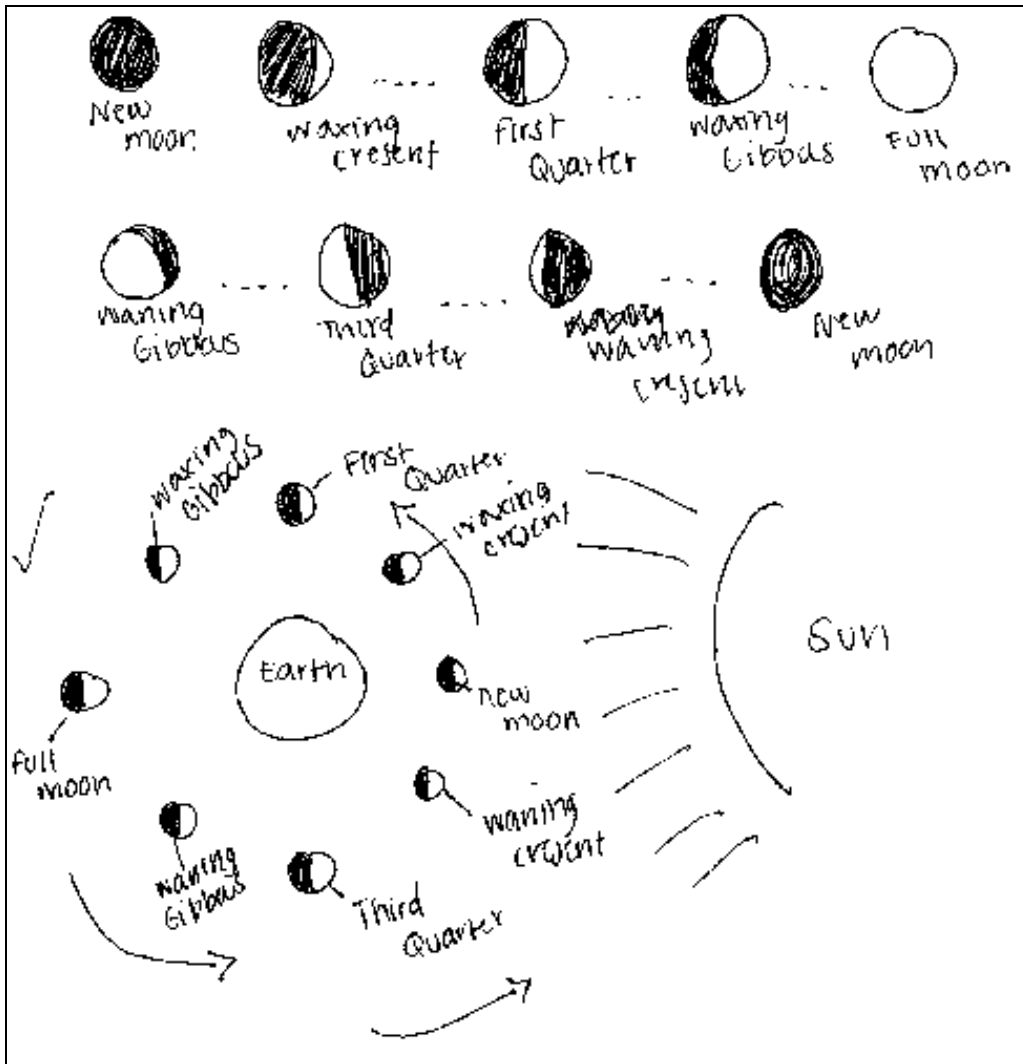 New
moon
waxing
cresent
First
Quarter
Waxing
Gibbous
Full
moon
Waning
Gibbous
Third
Quarter
Waning
crescent
New
moon
waxing
Gibbous
First
Quarter
waxing
Earth
Sun
New
moon
Full
moon
waning
waning
Gibbous
Third
Quarter